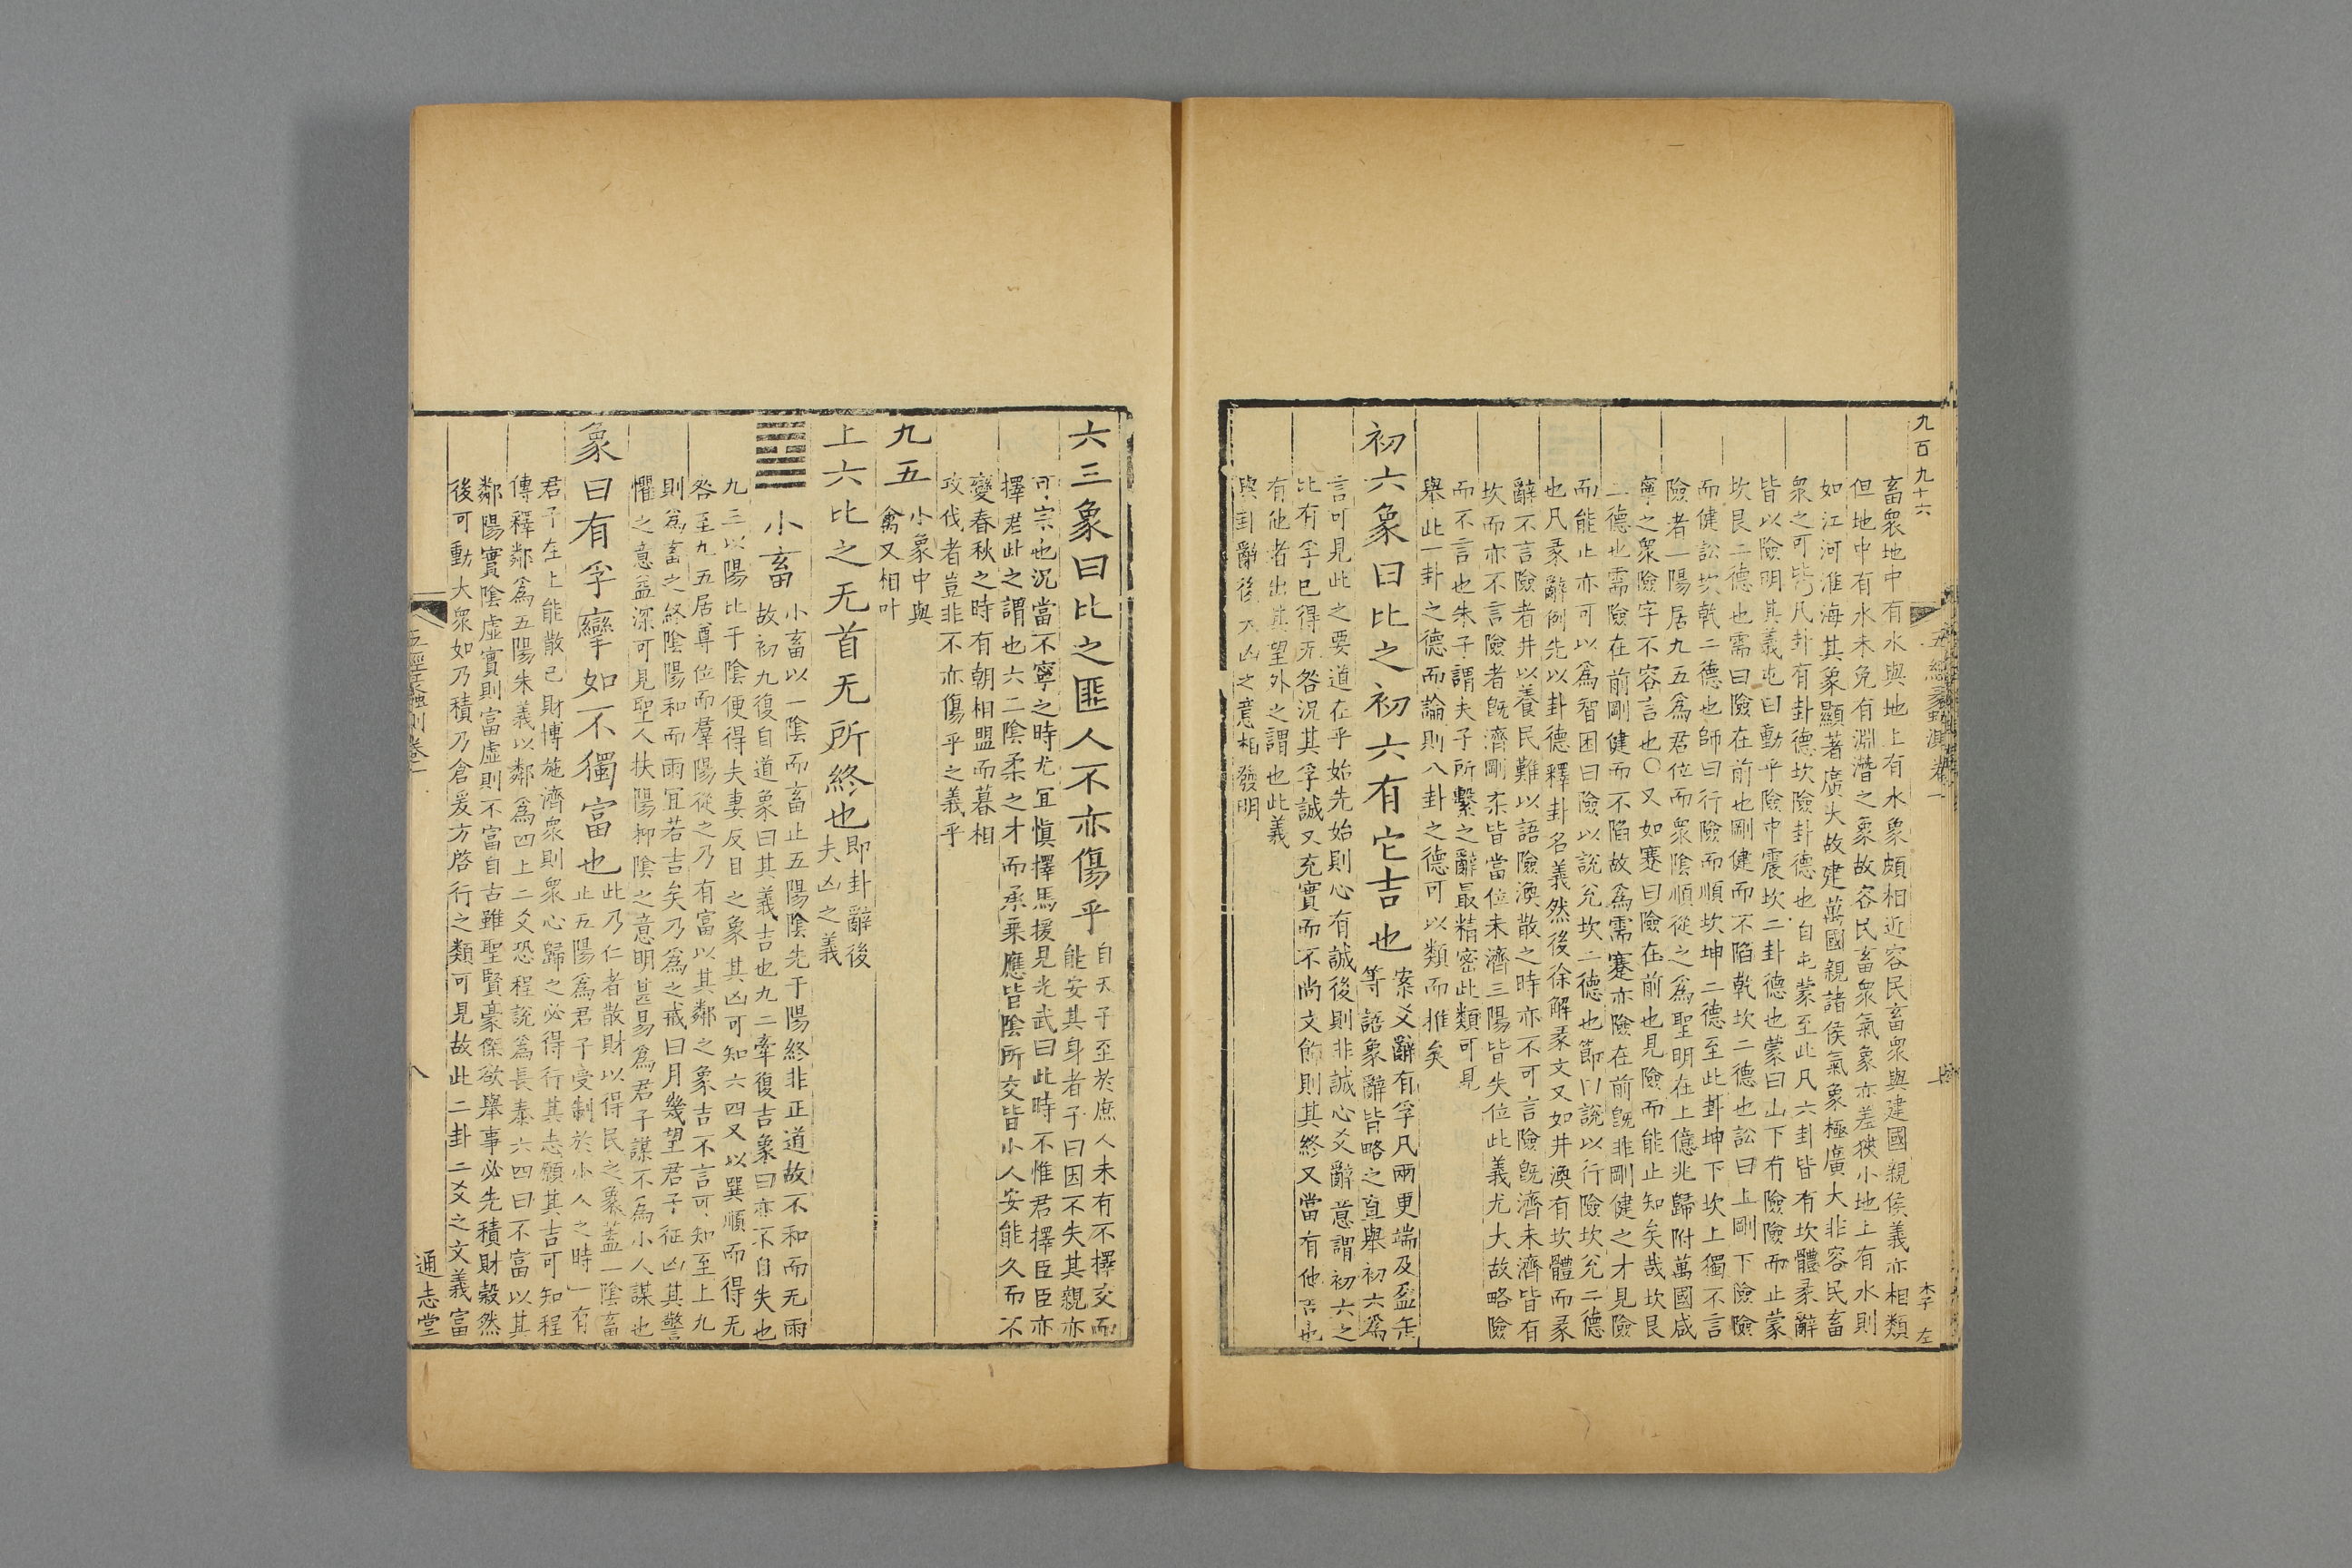 九百九十六
五經蠡測卷一
李 左
畜衆地中有水與地上有水象頗相近容民畜衆與建國親侯義亦相類
但地中有水未免有淵潛之象故容民畜衆氣象亦差狹小地上有水則
如江河淮海其象顯著廣大故建萬國親諸侯氣象極廣大非容民畜
衆之可比凡卦有卦德坎險卦德也自屯蒙至此凡六卦皆有坎體彖辭
皆以險明其義屯曰動乎險中震坎二卦德也蒙曰山下有險險而止蒙
坎艮二德也需曰險在前也剛健而不陷乾坎二德也訟曰上剛下險險
而健訟坎乾二德也師曰行險而順坎坤二德至此卦坤下坎上獨不言
險者一陽居九五爲君位而衆陰順從之爲聖明在上億兆歸附萬國咸
寧之衆險字不容言也○又如蹇曰險在前也見險而能止知矣哉坎艮
二德也需險在前剛健而不陷故爲需蹇亦險在前旣非剛健之才見險
而能止亦可以爲智困曰險以說兌坎二德也節曰說以行險坎兌二德
也凡彖辭例先以卦德釋卦名義然後徐解彖文又如井渙有坎體而彖
辭不言險者井以養民難以語險渙散之時亦不可言險旣濟未濟皆有
坎而亦不言險者旣濟剛柔皆當位未濟三陽皆失位此義尤大故略險
而不言也朱子謂夫子所繫之辭最精密此類可見
舉此一卦之德而論則八卦之德可以類而推矣
初六象曰比之初六有它吉也案爻辭有孚凡兩更端及盈缶
等語象辭皆略之直舉初六爲
言可見此之要道在乎始先始則心有誠後則非誠心爻辭意謂初六之
比有孚已得无咎況其孚誠又充實而不尚文飾則其終又當有他吉也
有他者出其望外之謂也此義
與卦辭後夫凶之意相發明
六三象曰比之匪人不亦傷乎自天子至於庶人未有不擇交而
能安其身者子曰因不失其親亦
可宗也況當不寧之時尤宜愼擇馬援見光武曰此時不惟君擇臣臣亦
擇君此之謂也六二陰柔之才而承乘應皆陰所交皆小人安能久而不
變春秋之時有朝相盟而暮相
攻伐者豈非不亦傷乎之義乎
九五小象中與
禽又相叶
上六比之无首无所終也即卦辭後
夫凶之義
䷈小畜小畜以一陰而畜止五陽陰先于陽終非正道故不和而无雨
故初九復自道象曰其義吉也九二牽復吉象曰亦不自失也
九三以陽比于陰便得夫妻反目之象其凶可知六四又以巽順而得无
咎至九五居尊位而羣陽從之乃有富以其鄰之象吉不言可知至上九
則爲畜之終陰陽和而雨宜若吉矣乃爲之戒曰月幾望君子征凶其警
懼之意益深可見聖人扶陽抑陰之意明甚易爲君子謀不爲小人謀也
象曰有孚攣如不獨富也此乃仁者散財以得民之象蓋一陰畜
止五陽爲君子受制於小人之時一有
君子在上能散已財博施濟衆則衆心歸之必得行其志願其吉可知程
傳釋鄰爲五陽朱義以鄰爲四上二爻恐程說爲長泰六四曰不富以其
鄰陽實陰虛實則富虛則不富自古雖聖賢豪傑欲舉事必先積財穀然
後可動大衆如乃積乃倉爰方啓行之類可見故此二卦二爻之文義富
五經蠡測卷一
八
通志堂